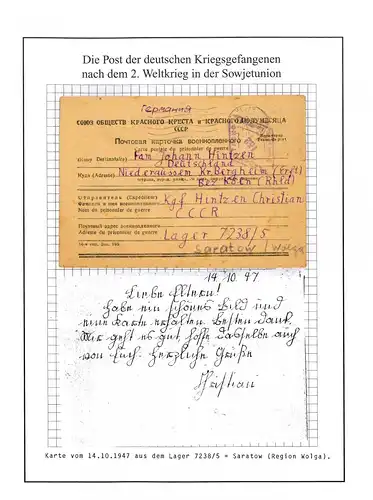 Die Post der deutschen Kriegsgefangenen
nach dem 2. Weltkrieg in der Sowjetunion
Германия
СОЮЗ ОБЩЕСТВ КРАСНОГО КРЕСТА и КРАСНОГО ПОЛУМЕСЯЦА
СССР
Почтовая карточка военнопленного
Carte postale du prisonnier de guerre
Кому (Destinataire) Fam Johann Hintzen
Deutschland
Куда (Adresse) Niederaussem Kr. Bergheim (Erft)
Bez. Köln (Rhld)
Отправитель (Expéditeur) Kgf Hintzen Christian
Фамилия и имя военнопленного
Nom du prisonnier de guerre CCCP
Почтовый адрес военнопленного
Adresse du prisonnier de guerre Lager 7238/5
Saratow (Wolga)
14.10.47
Liebe Eltern!
Habe ein schönes Bild und
eine Karte erhalten. Besten Dank.
Mir geht es gut, hoffe dasselbe auch
von Euch. Herzliche Grüße
Karte vom 14.10.1947 aus dem Lager 7238/5 = Saratow (Region Wolga).